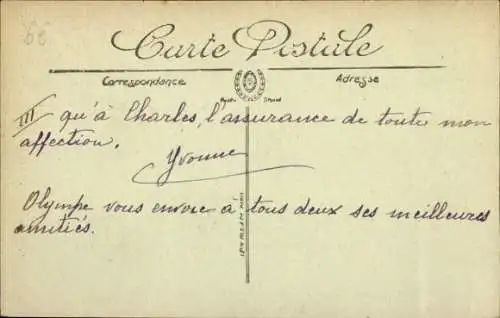 Carte Postale
Correspondance
Adresse
III qu'à Charles, l'assurance de toute mon
affection.
Yvonne
Olympe vous envoie à tous deux ses meilleures
amitiés.